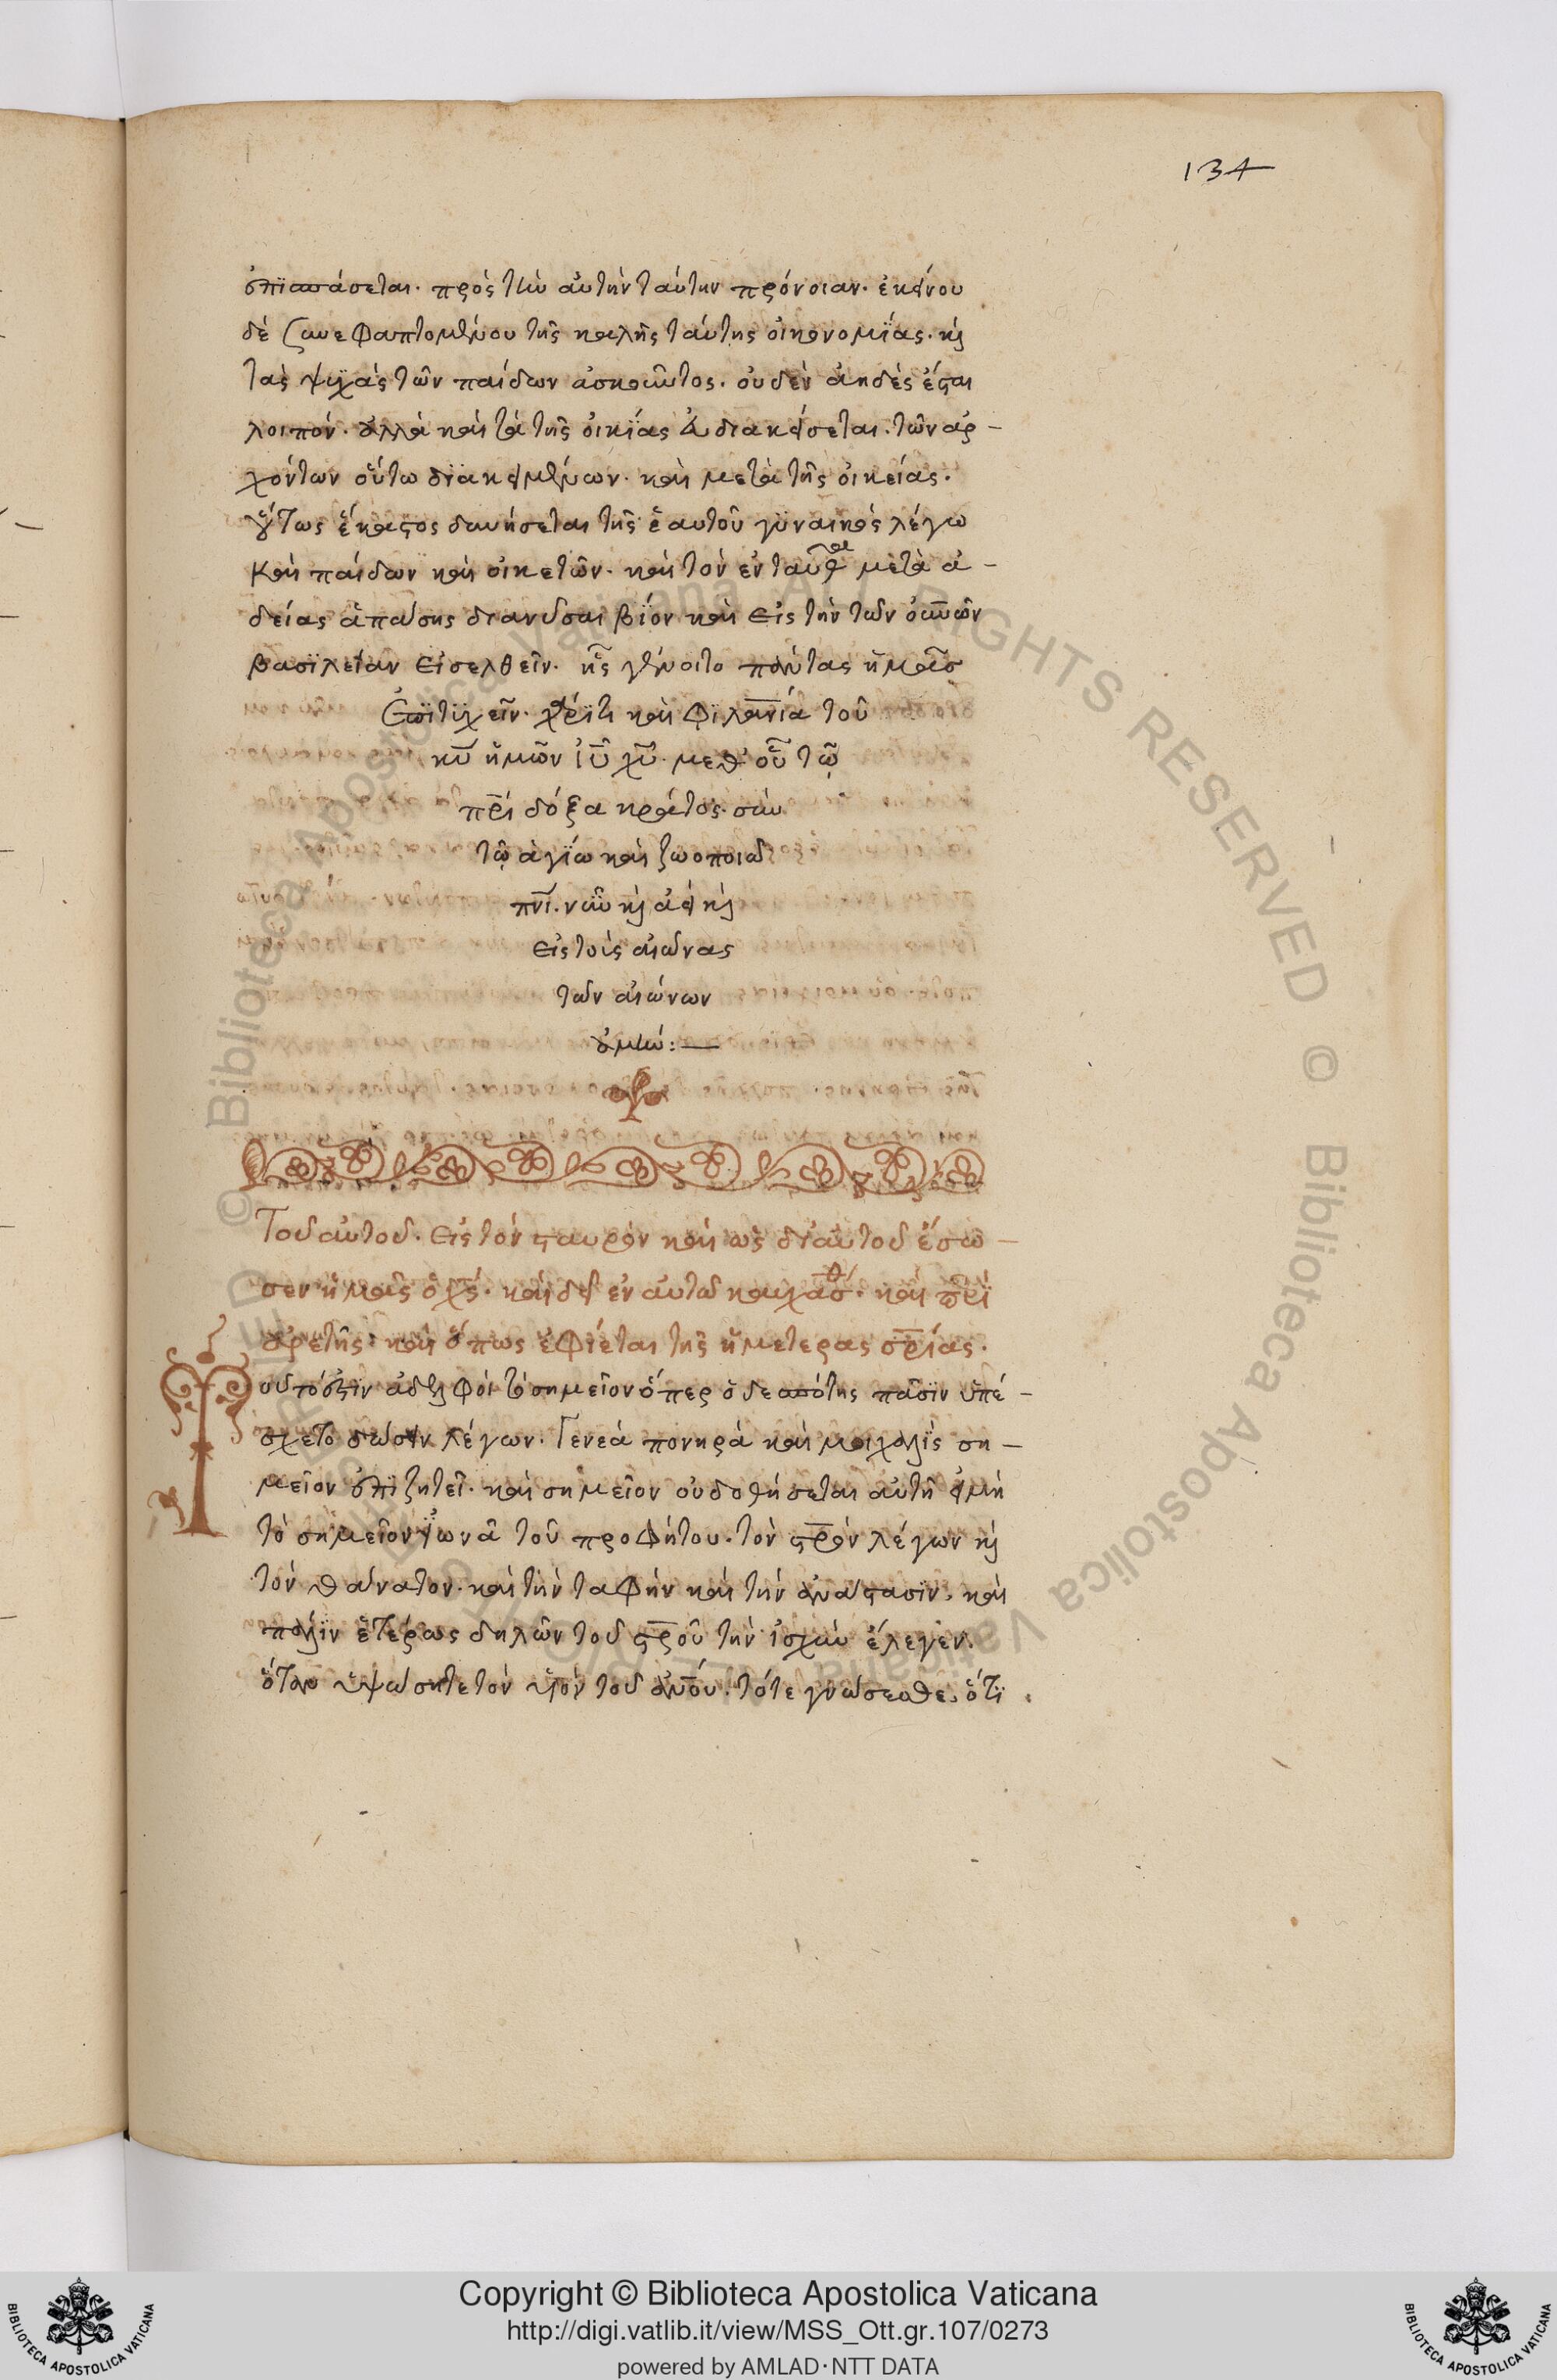 134
ἐπϊσπάσεται· πρὸς τὴν αὐτὴν ταύτην πρόνοιαν· ἐκείνου
δὲ συνεφαπτομένου τῆς καλῆς ταύτης οἰκονομϊας· κỳ
τὰς ψϋχὰς τῶν παίδων ἀσκοῦντος· οὐδὲν ἀηδὲς ἔσται
λοιπόν· ἀλλὰ καὶ τὰ τῆς οἰκϊας εὖ διακείσεται· τῶν ἀρ-
χόντων οὕτω δϊακειμένων· καὶ μετὰ τῆς οἰκείας·
οὕτως ἕκαστος δυνήσεται τῆς ἑαυτοῦ γϋναικὸς λέγω
καὶ παίδων καὶ οἰκετῶν· καὶ τὸν ἐνταῦθα μετὰ ἀ-
δείας ἁπάσης διανῦσαι βϊον καὶ εἰς τὴν τῶν οὐνῶν
βασϊλείαν εἰσελθεῖν· ἧς γένοιτο πάντας ἡμᾶσ
ἐπϊτϋχεῖν· χάρϊτι καὶ φϊλανϊα τοῦ
κῦ ἡμῶν ἰῦ χῦ· μεθ' οὗ τῷ
πρὶ δόξα κράτος· σὺν
τῷ ἁγϊω καὶ ζωοποιῶ
πνϊ· νῦν κỳ ἀεὶ κỳ
εἰς τοὺς αἰῶνας
τῶν αἰώνων
ἀμήν:—
Τοῦ αὐτοῦ· εἰς τὸν σταυρὸν καὶ ὡς δϊ αὐτοῦ ἔσω-
σεν ἡμᾶς ὁ χς· καὶ δεῖ ἐν αὐτῶ καυχᾶσθ· καὶ περὶ
ἀρετῆς· καὶ ὅπως ἐφίεται τῆς ἡμετερας σρίας·
Τοῦτό ἐστϊν ἀδελφοὶ τὸ σημεῖον ὅπερ ὁ δεσπότης πᾶσϊν ὑπέ-
σχετο δώσειν λέγων· Γενεὰ πονηρὰ καὶ μοιχαλϊς ση-
μεῖον ἐπϊζητεῖ· καὶ σημεῖον οὐ δοθήσεται αὐτῆ εἰμὴ
τὸ σημεῖον ϊωνᾶ τοῦ προφήτου· τὸν στρὸν λέγων κỳ
τὸν θάνατον· καὶ τὴν ταφὴν καὶ τὴν ἀνάστασϊν· καὶ
πάλϊν ἑτέρως δηλῶν τοῦ στροῦ τὴν ἰσχὺν ἔλεγεν·
ὅταν ὑψώσητε τὸν υἱὸν τοῦ ἀνου· τότε γνώσεσθε, ὅτϊ
Copyright © Biblioteca Apostolica Vaticana
http://digi.vatlib.it/view/MSS_Ott.gr.107/0273
powered by AMLAD·NTT DATA